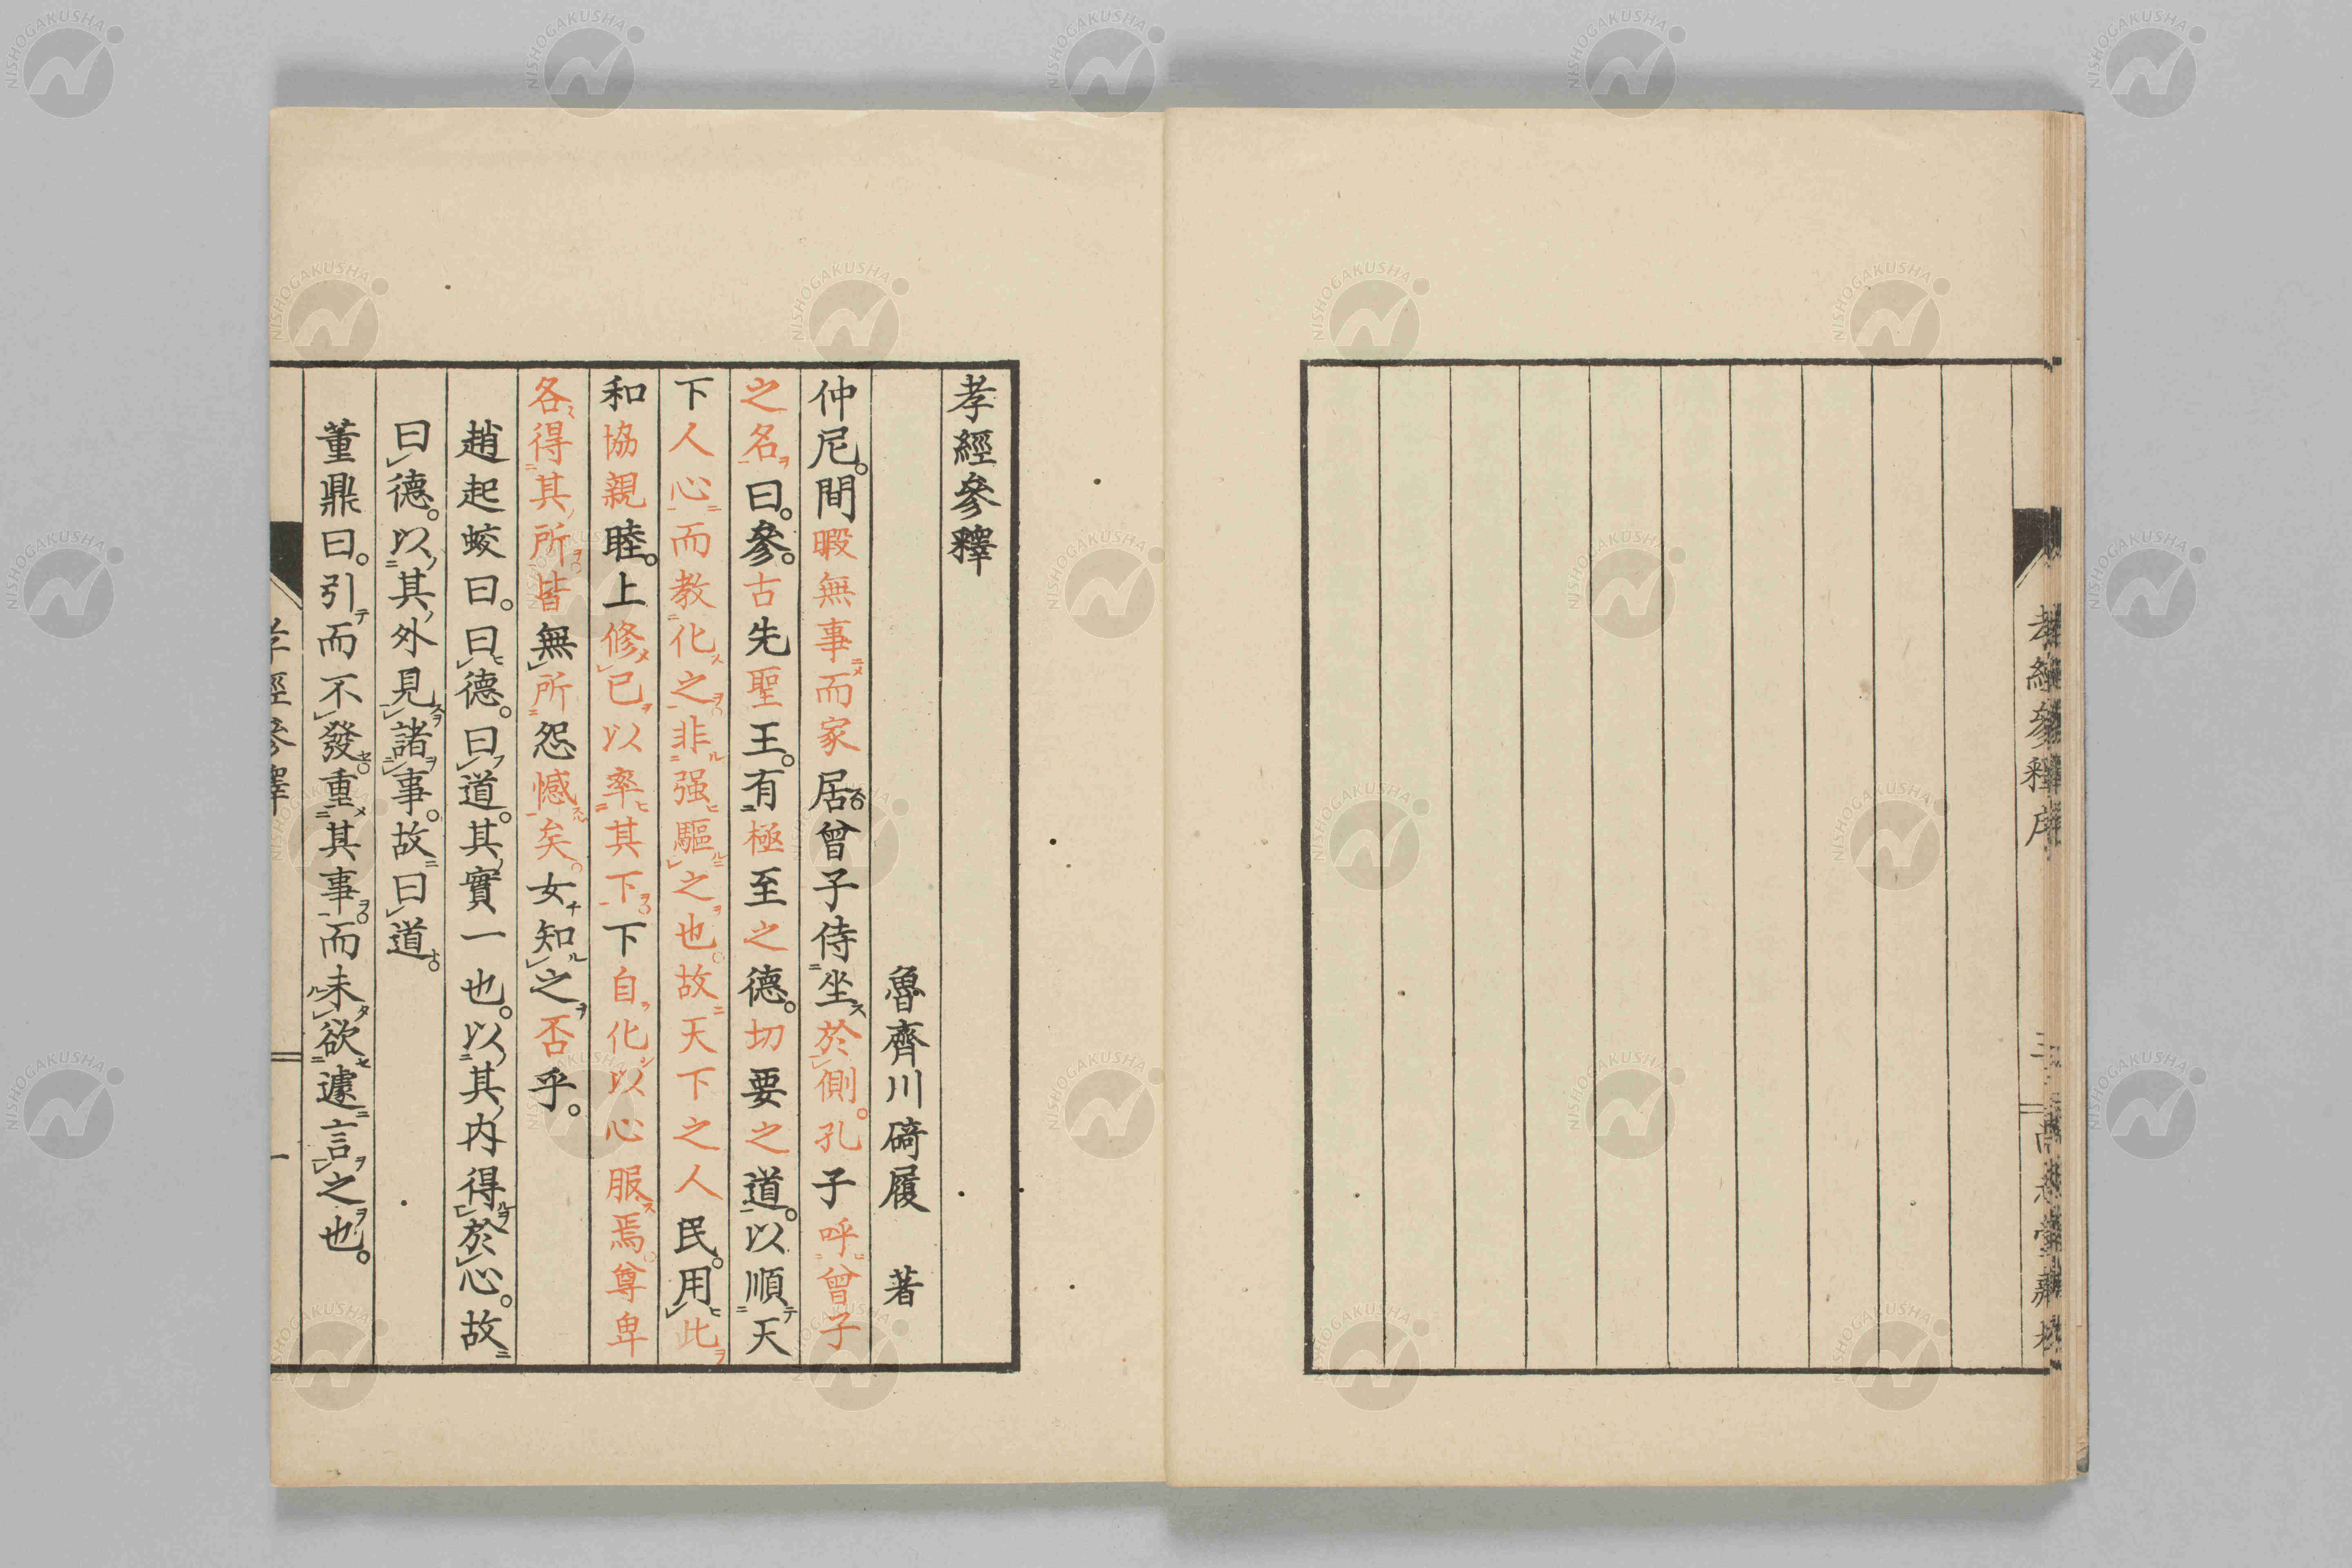 孝經參釋序
孝經參釋
魯齊川碕履 著
仲尼。間暇無事而家居曾子侍坐於側。孔子呼曾子
之名曰。參。古先聖王。有極至之德。切要之道。以順天
下人心而教化之非强驅之也。故天下之人民。用此
和協親睦。上修己以率其下下自化以心服焉。尊卑
各得其所皆無所怨憾矣。女知之否乎。
趙起蛟曰。曰德。曰道。其實一也。以其內得於心。故
曰德。以其外見諸事。故曰道。
董鼎曰。引而不發重其事而未欲遽言之也。
孝經參釋
一
NISHOGAKUSHA